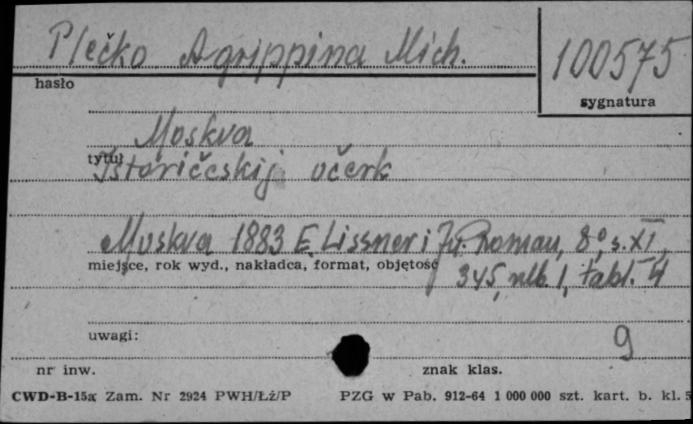 Plečko Agrippina Mich.
100575
hasło
sygnatura
Moskva
tytuł
Istoričeskij očerk
Moskva 1883 E. Lissner i Ju. Roman, 8°, s. XI,
miejsce, rok wyd., nakładca, format, objętość
345, nlb. 1, tabl. 4
uwagi:
9
nr inw.
znak klas.
CWD-B-15a Zam. Nr 2924 PWH/Łż/P
PZG w Pab. 912-64 1 000 000 szt. kart. b. kl. 5